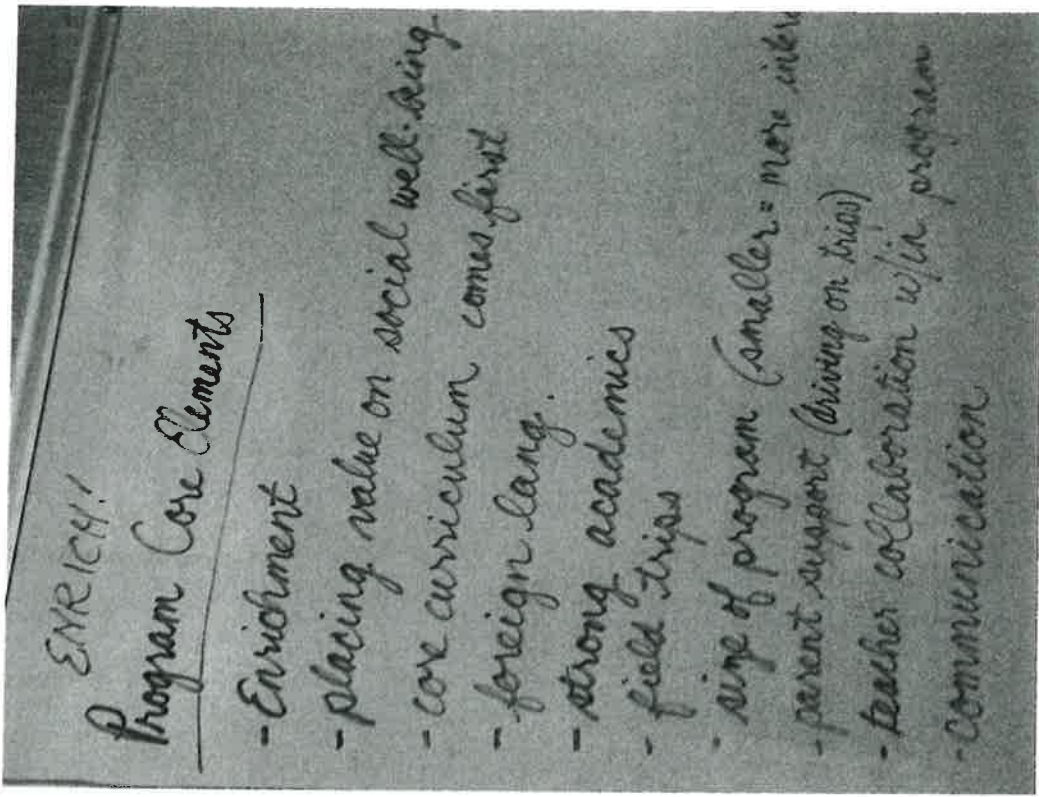 ENRICH!
Program Core Elements
- Enrichment
- placing value on social well-being
- core curriculum comes first
- foreign lang.
- strong academics
- field trips
- size of program (smaller = more
- parent support (driving on trips)
- teacher collaboration w/in program
- communication